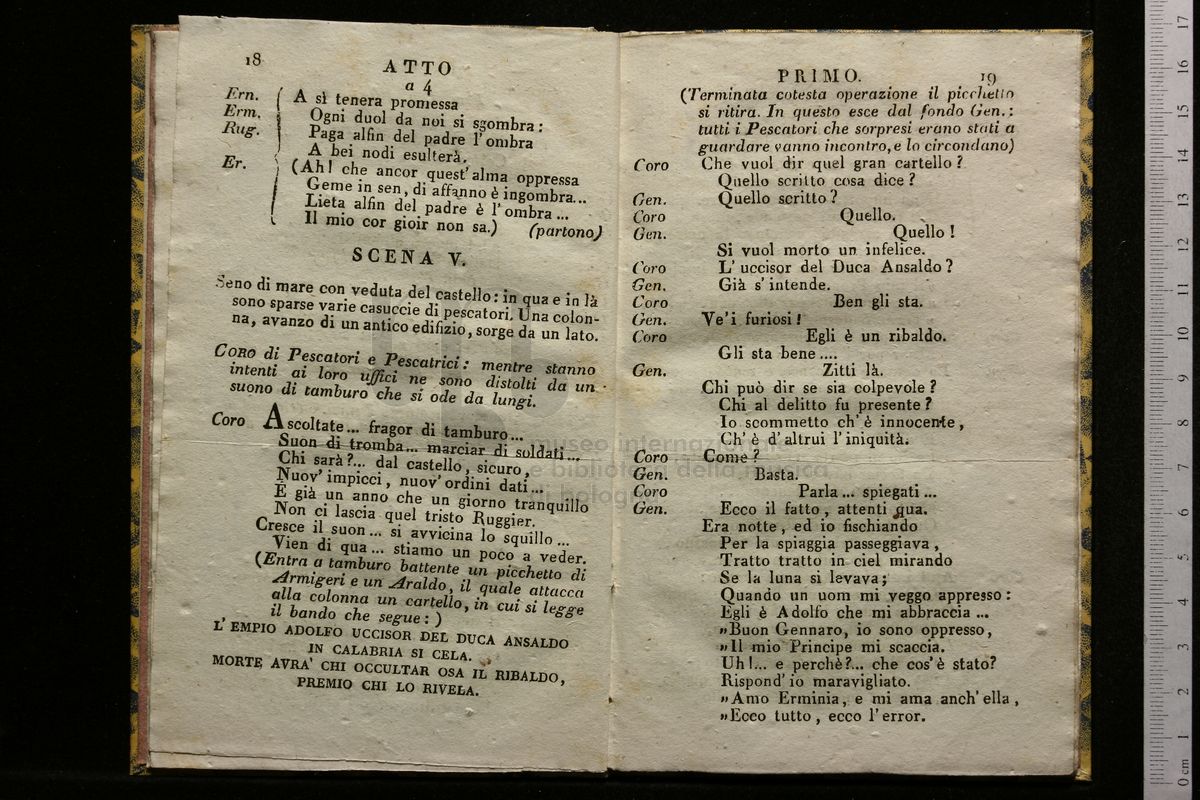 18
ATTO
a 4
Ern. A sì tenera promessa
Erm. Ogni duol da noi si sgombra:
Rug. Paga alfin del padre l'ombra
A bei nodi esulterà.
Er. (Ah! che ancor quest' alma oppressa
Geme in sen, di affanno è ingombra...
Lieta alfin del padre è l'ombra ...
Il mio cor gioir non sa.) (partono)
SCENA V.
Seno di mare con veduta del castello: in qua e in là
sono sparse varie casuccie di pescatori. Una colon-
na, avanzo di un antico edifizio, sorge da un lato.
CORO di Pescatori e Pescatrici: mentre stanno
intenti ai loro uffici ne sono distolti da un
suono di tamburo che si ode da lungi.
Coro Ascoltate... fragor di tamburo...
Suon di tromba... marciar di soldati...
Chi sarà?... dal castello, sicuro,
Nuov' impicci, nuov' ordini dati...
È già un anno che un giorno tranquillo
Non ci lascia quel tristo Ruggier.
Cresce il suon... si avvicina lo squillo...
Vien di qua... stiamo un poco a veder.
(Entra a tamburo battente un picchetto di
Armigeri e un Araldo, il quale attacca
alla colonna un cartello, in cui si legge
il bando che segue: )
L' EMPIO ADOLFO UCCISOR DEL DUCA ANSALDO
IN CALABRIA SI CELA.
MORTE AVRA' CHI OCCULTAR OSA IL RIBALDO,
PREMIO CHI LO RIVELA.
PRIMO. 19
(Terminata cotesta operazione il picchetto
si ritira. In questo esce dal fondo Gen.:
tutti i Pescatori che sorpresi erano stati a
guardare vanno incontro, e lo circondano)
Coro Che vuol dir quel gran cartello?
Quello scritto cosa dice?
Gen. Quello scritto?
Coro Quello.
Gen. Quello!
Si vuol morto un infelice.
Coro L' uccisor del Duca Ansaldo?
Gen. Già s' intende.
Coro Ben gli sta.
Gen. Ve' i furiosi!
Coro Egli è un ribaldo.
Gli sta bene....
Gen. Zitti là.
Chi può dir se sia colpevole?
Chi al delitto fu presente?
Io scommetto ch' è innocente,
Ch' è d' altrui l' iniquità.
Coro Come?
Gen. Basta.
Coro Parla... spiegati...
Gen. Ecco il fatto, attenti qua.
Era notte, ed io fischiando
Per la spiaggia passeggiava,
Tratto tratto in ciel mirando
Se la luna si levava;
Quando un uom mi veggo appresso:
Egli è Adolfo che mi abbraccia ...
„Buon Gennaro, io sono oppresso,
„Il mio Principe mi scaccia.
Uh!... e perchè?... che cos' è stato?
Rispond' io maravigliato.
„Amo Erminia, e mi ama anch' ella,
„Ecco tutto, ecco l' error.
museo internazionale
e biblioteca della musica
di bologna
0 cm 1 2 3 4 5 6 7 8 9 10 11 12 13 14 15 16 17